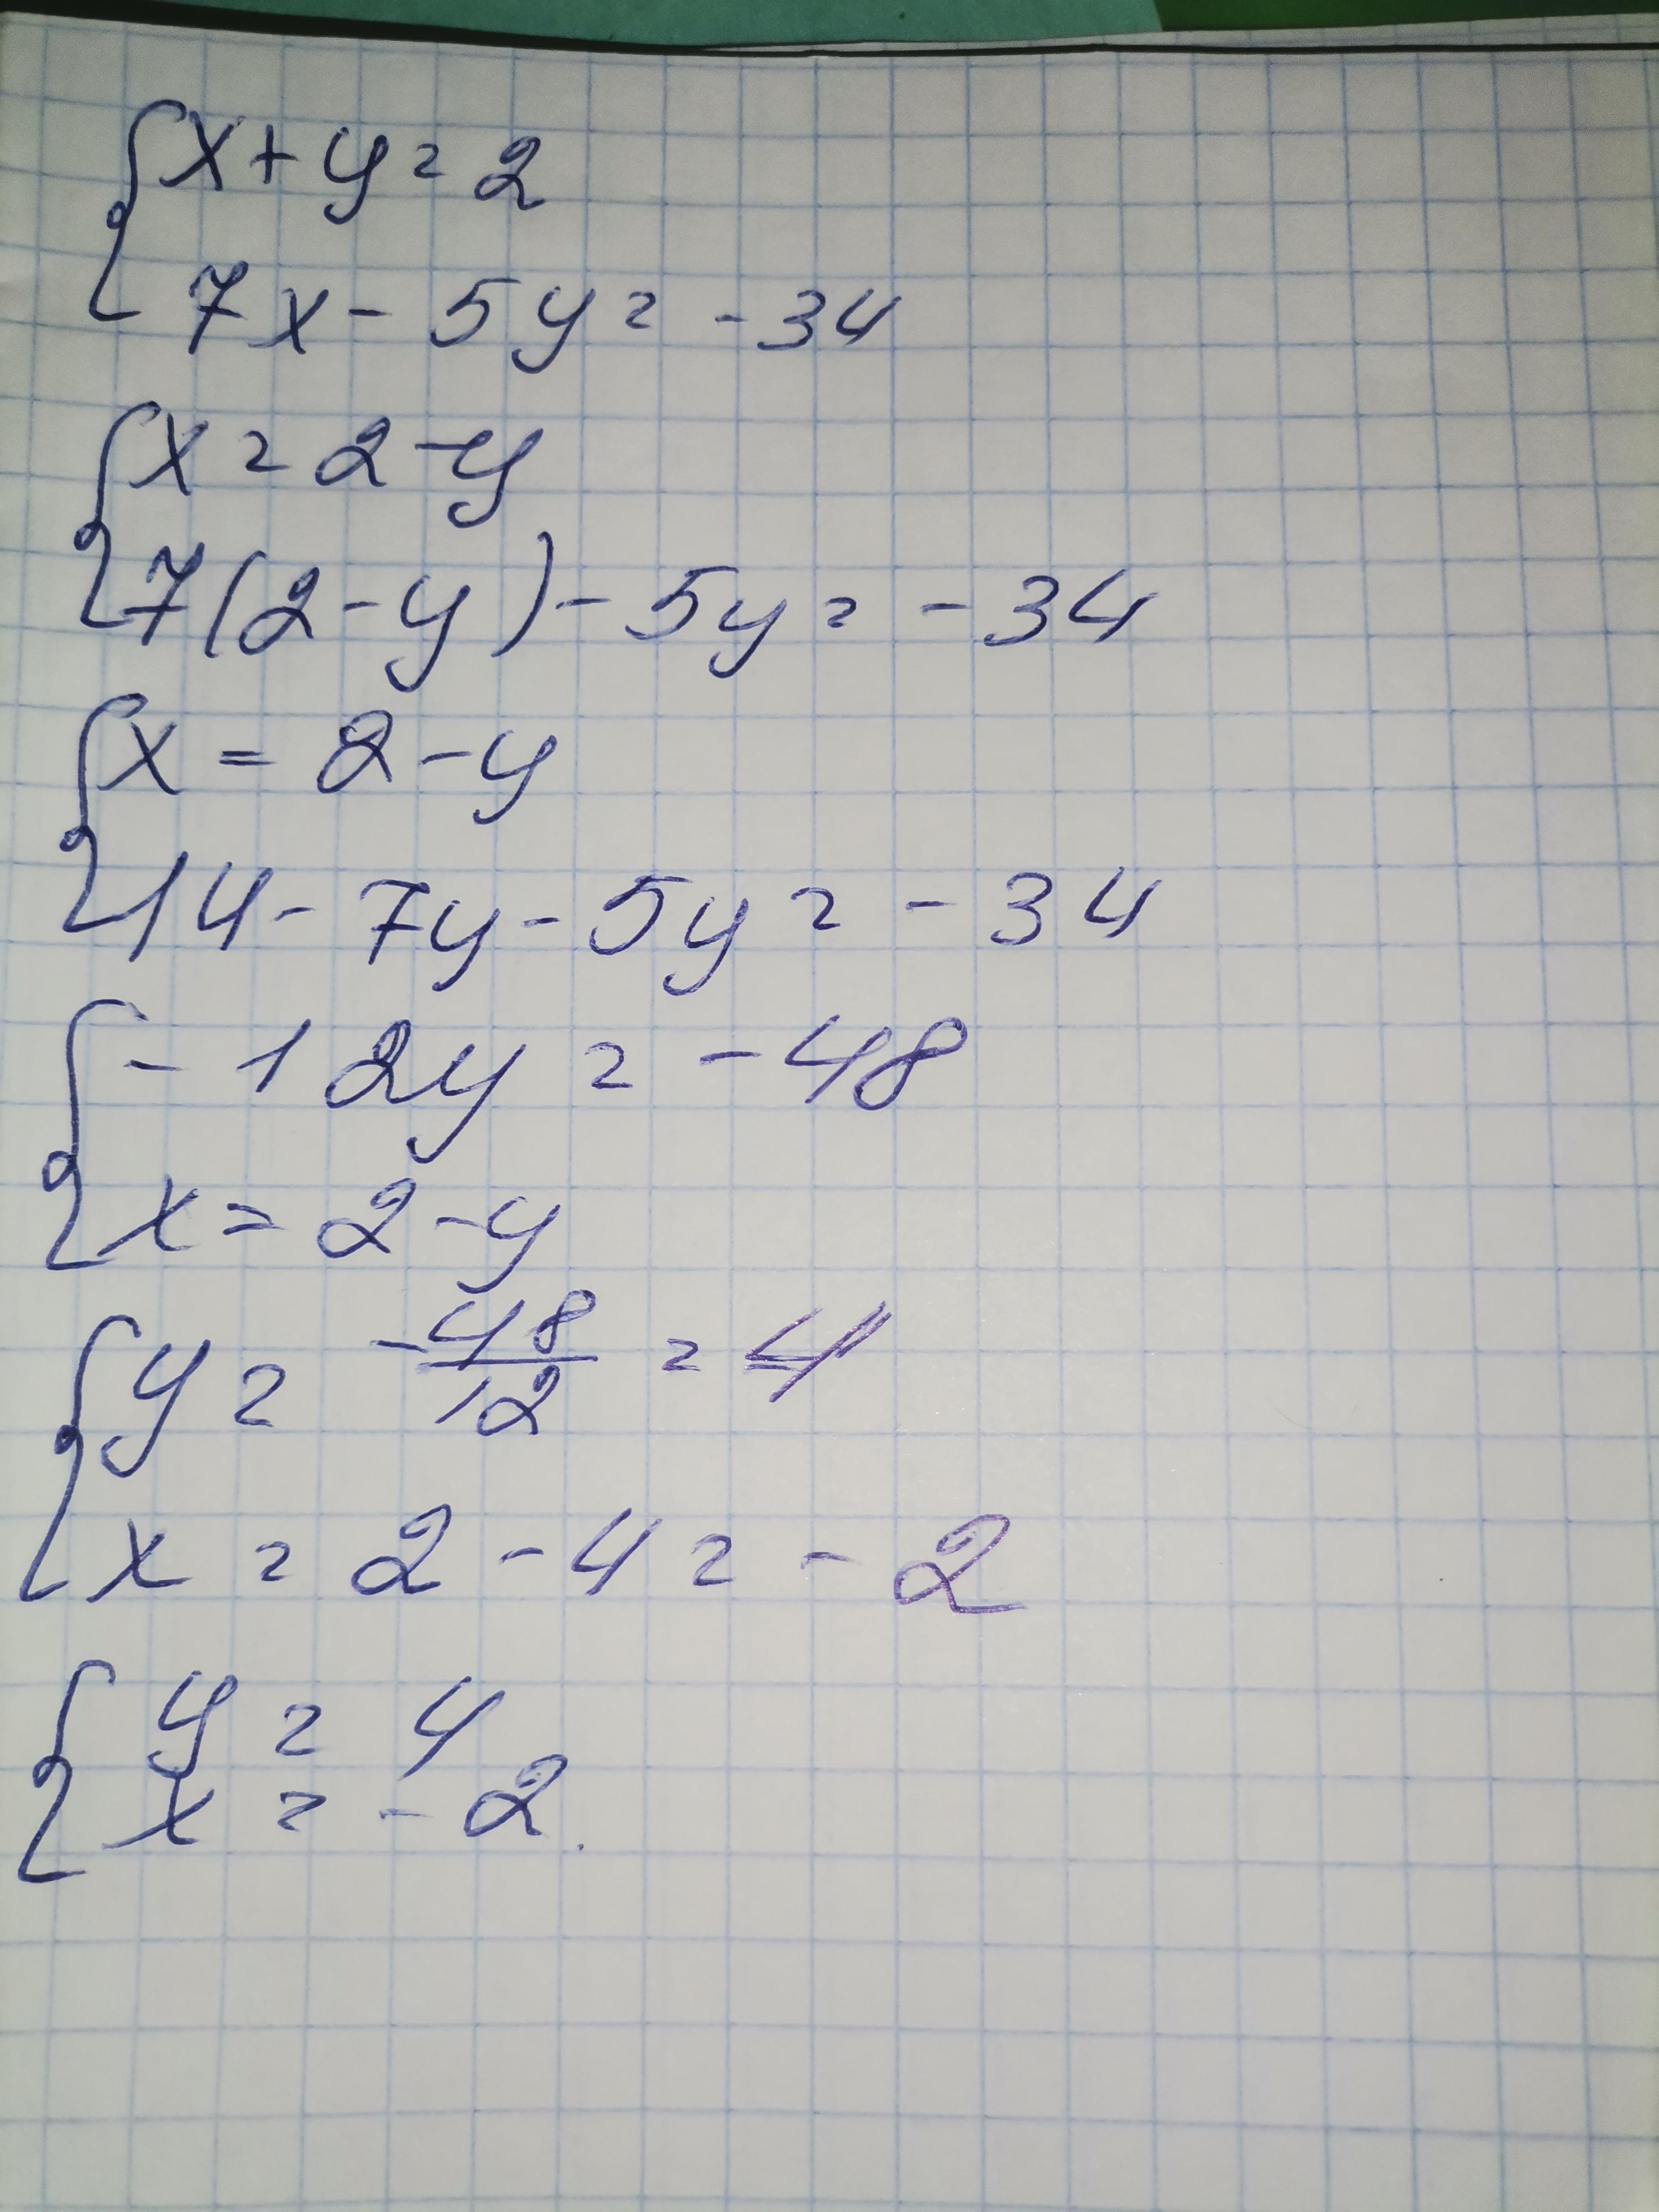 { x + y = 2
7x - 5y = -34
{ x = 2 - y
7(2 - y) - 5y = -34
{ x = 2 - y
14 - 7y - 5y = -34
{ -12y = -48
x = 2 - y
{ y = -48/12 = 4
x = 2 - 4 = -2
{ y = 4
x = -2.